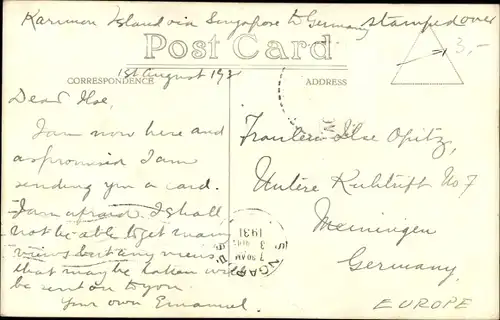 Karimon Island via Singapore to Germany stamped over
Post Card
3,-
CORRESPONDENCE
ADDRESS
1st August 193
Dear Ilse,
I am now here and
as promised I am
sending you a card.
I am afraid I shall
not be able to get many
views but any views
that may be taken will
be sent on to you.
Your own Emanuel.
Fraulein Ilse Opitz,
Untere Kuhtrift No 7
Meiningen
Germany.
EUROPE
1931